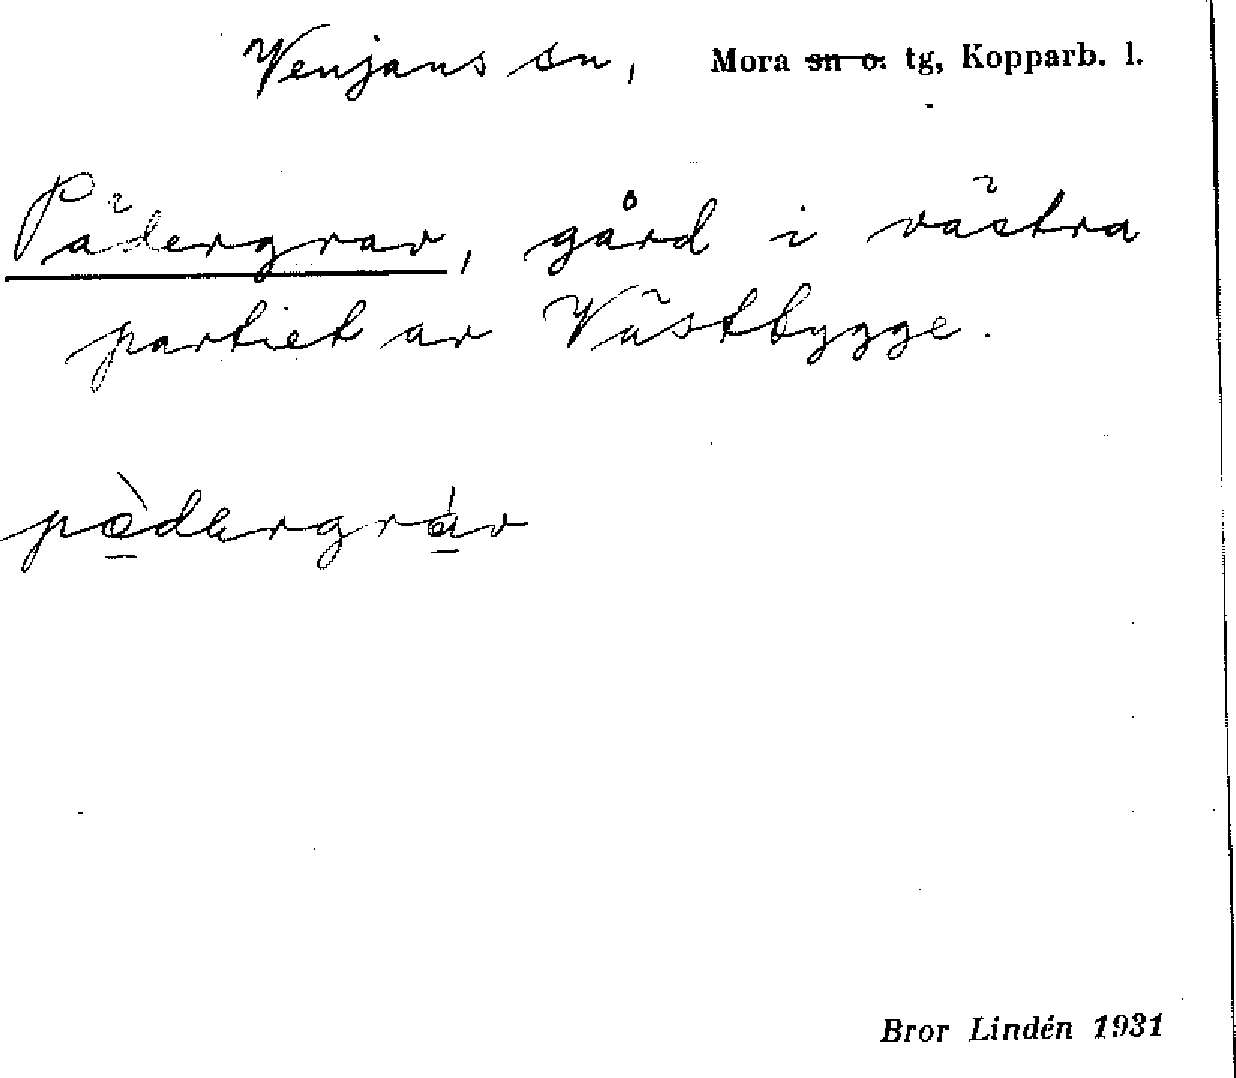 Venjans sn, Mora sn o. tg, Kopparb. l.
Pädergrav, gård i västra
partiet av Västbygge.
Bror Lindén 1931